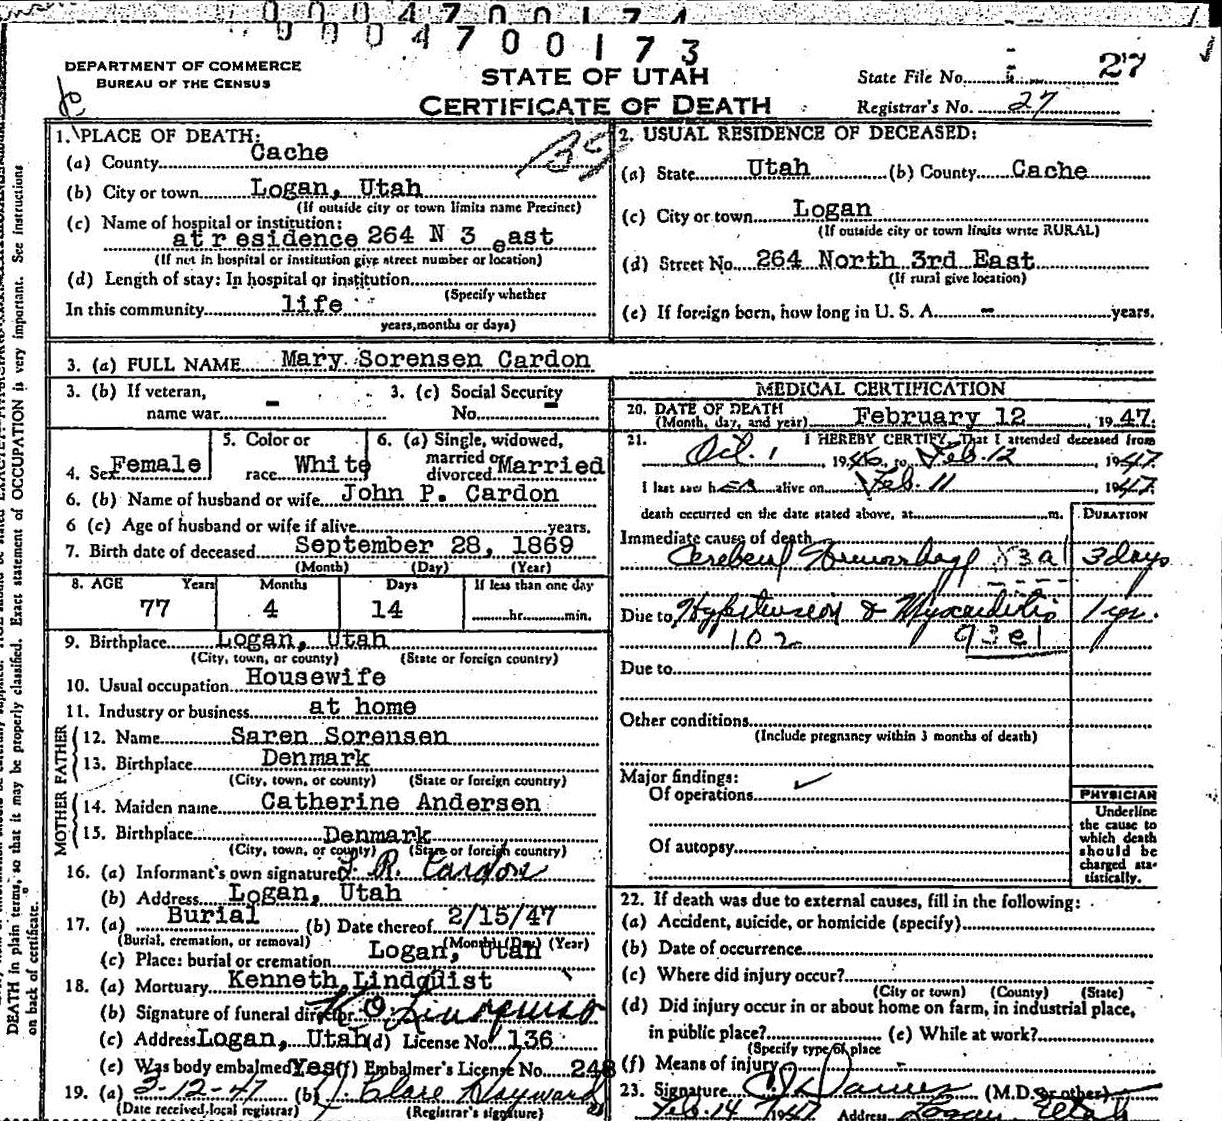 00047001174
00047 00173
DEPARTMENT OF COMMERCE
BUREAU OF THE CENSUS
STATE OF UTAH
CERTIFICATE OF DEATH
State File No. 27
Registrar's No. 27
1. PLACE OF DEATH:
(a) County Cache
(b) City or town Logan, Utah
(If outside city or town limits name Precinct)
(c) Name of hospital or institution:
at r esidence 264 N 3 east
(If not in hospital or institution give street number or location)
(d) Length of stay: In hospital or institution
(Specify whether
In this community life
years, months or days)
2. USUAL RESIDENCE OF DECEASED:
(a) State Utah (b) County Cache
(c) City or town Logan
(If outside city or town limits write RURAL)
(d) Street No. 264 North 3rd East
(If rural give location)
(e) If foreign born, how long in U. S. A. - years.
3. (a) FULL NAME Mary Sorensen Cardon
3. (b) If veteran, name war -
3. (c) Social Security No. -
4. Sex Female
5. Color or race White
6. (a) Single, widowed, married or divorced Married
6. (b) Name of husband or wife John P. Cardon
6 (c) Age of husband or wife if alive years.
7. Birth date of deceased September 28, 1869
(Month) (Day) (Year)
8. AGE Years Months Days If less than one day
77 4 14 hr. min.
9. Birthplace Logan, Utah
(City, town, or county) (State or foreign country)
10. Usual occupation Housewife
11. Industry or business at home
FATHER
12. Name Saren Sorensen
13. Birthplace Denmark
(City, town, or county) (State or foreign country)
MOTHER
14. Maiden name Catherine Andersen
15. Birthplace Denmark
(City, town, or county) (State or foreign country)
16. (a) Informant's own signature R. Cardon
(b) Address Logan, Utah
17. (a) Burial (b) Date thereof 2/15/47
(Burial, cremation, or removal) (Month) (Day) (Year)
(c) Place: burial or cremation Logan, Utah
18. (a) Mortuary Kenneth Lindquist
(b) Signature of funeral director K O Lindquist
(c) Address Logan, Utah (d) License No. 136
(e) Was body embalmed Yes (f) Embalmer's License No. 248
19. (a) 3-12-47 (b) J. Clare Hayward
(Date received local registrar) (Registrar's signature)
MEDICAL CERTIFICATION
20. DATE OF DEATH
(Month, day, and year) February 12, 1947.
21. I HEREBY CERTIFY, That I attended deceased from
Oct. 1, 1946, to Feb. 12, 1947
I last saw her alive on Feb. 11, 1947.
death occurred on the date stated above, at m. DURATION
Immediate cause of death
Cerebral Hemorrhage 83a 3 days
Due to Hypertension & Myocarditis 1 yr.
102 93e1
Due to
Other conditions
(Include pregnancy within 3 months of death)
Major findings:
Of operations
Of autopsy
PHYSICIAN
Underline
the cause to
which death
should be
charged sta-
tistically.
22. If death was due to external causes, fill in the following:
(a) Accident, suicide, or homicide (specify)
(b) Date of occurrence
(c) Where did injury occur?
(City or town) (County) (State)
(d) Did injury occur in or about home on farm, in industrial place,
in public place? (e) While at work?
(Specify type of place
(f) Means of injury
23. Signature (M.D. or other)
Feb. 14 1947 Address Logan Utah
DEATH in plain terms, so that it may be properly classified. Exact statement of OCCUPATION is very important. See Instructions
on back of certificate.